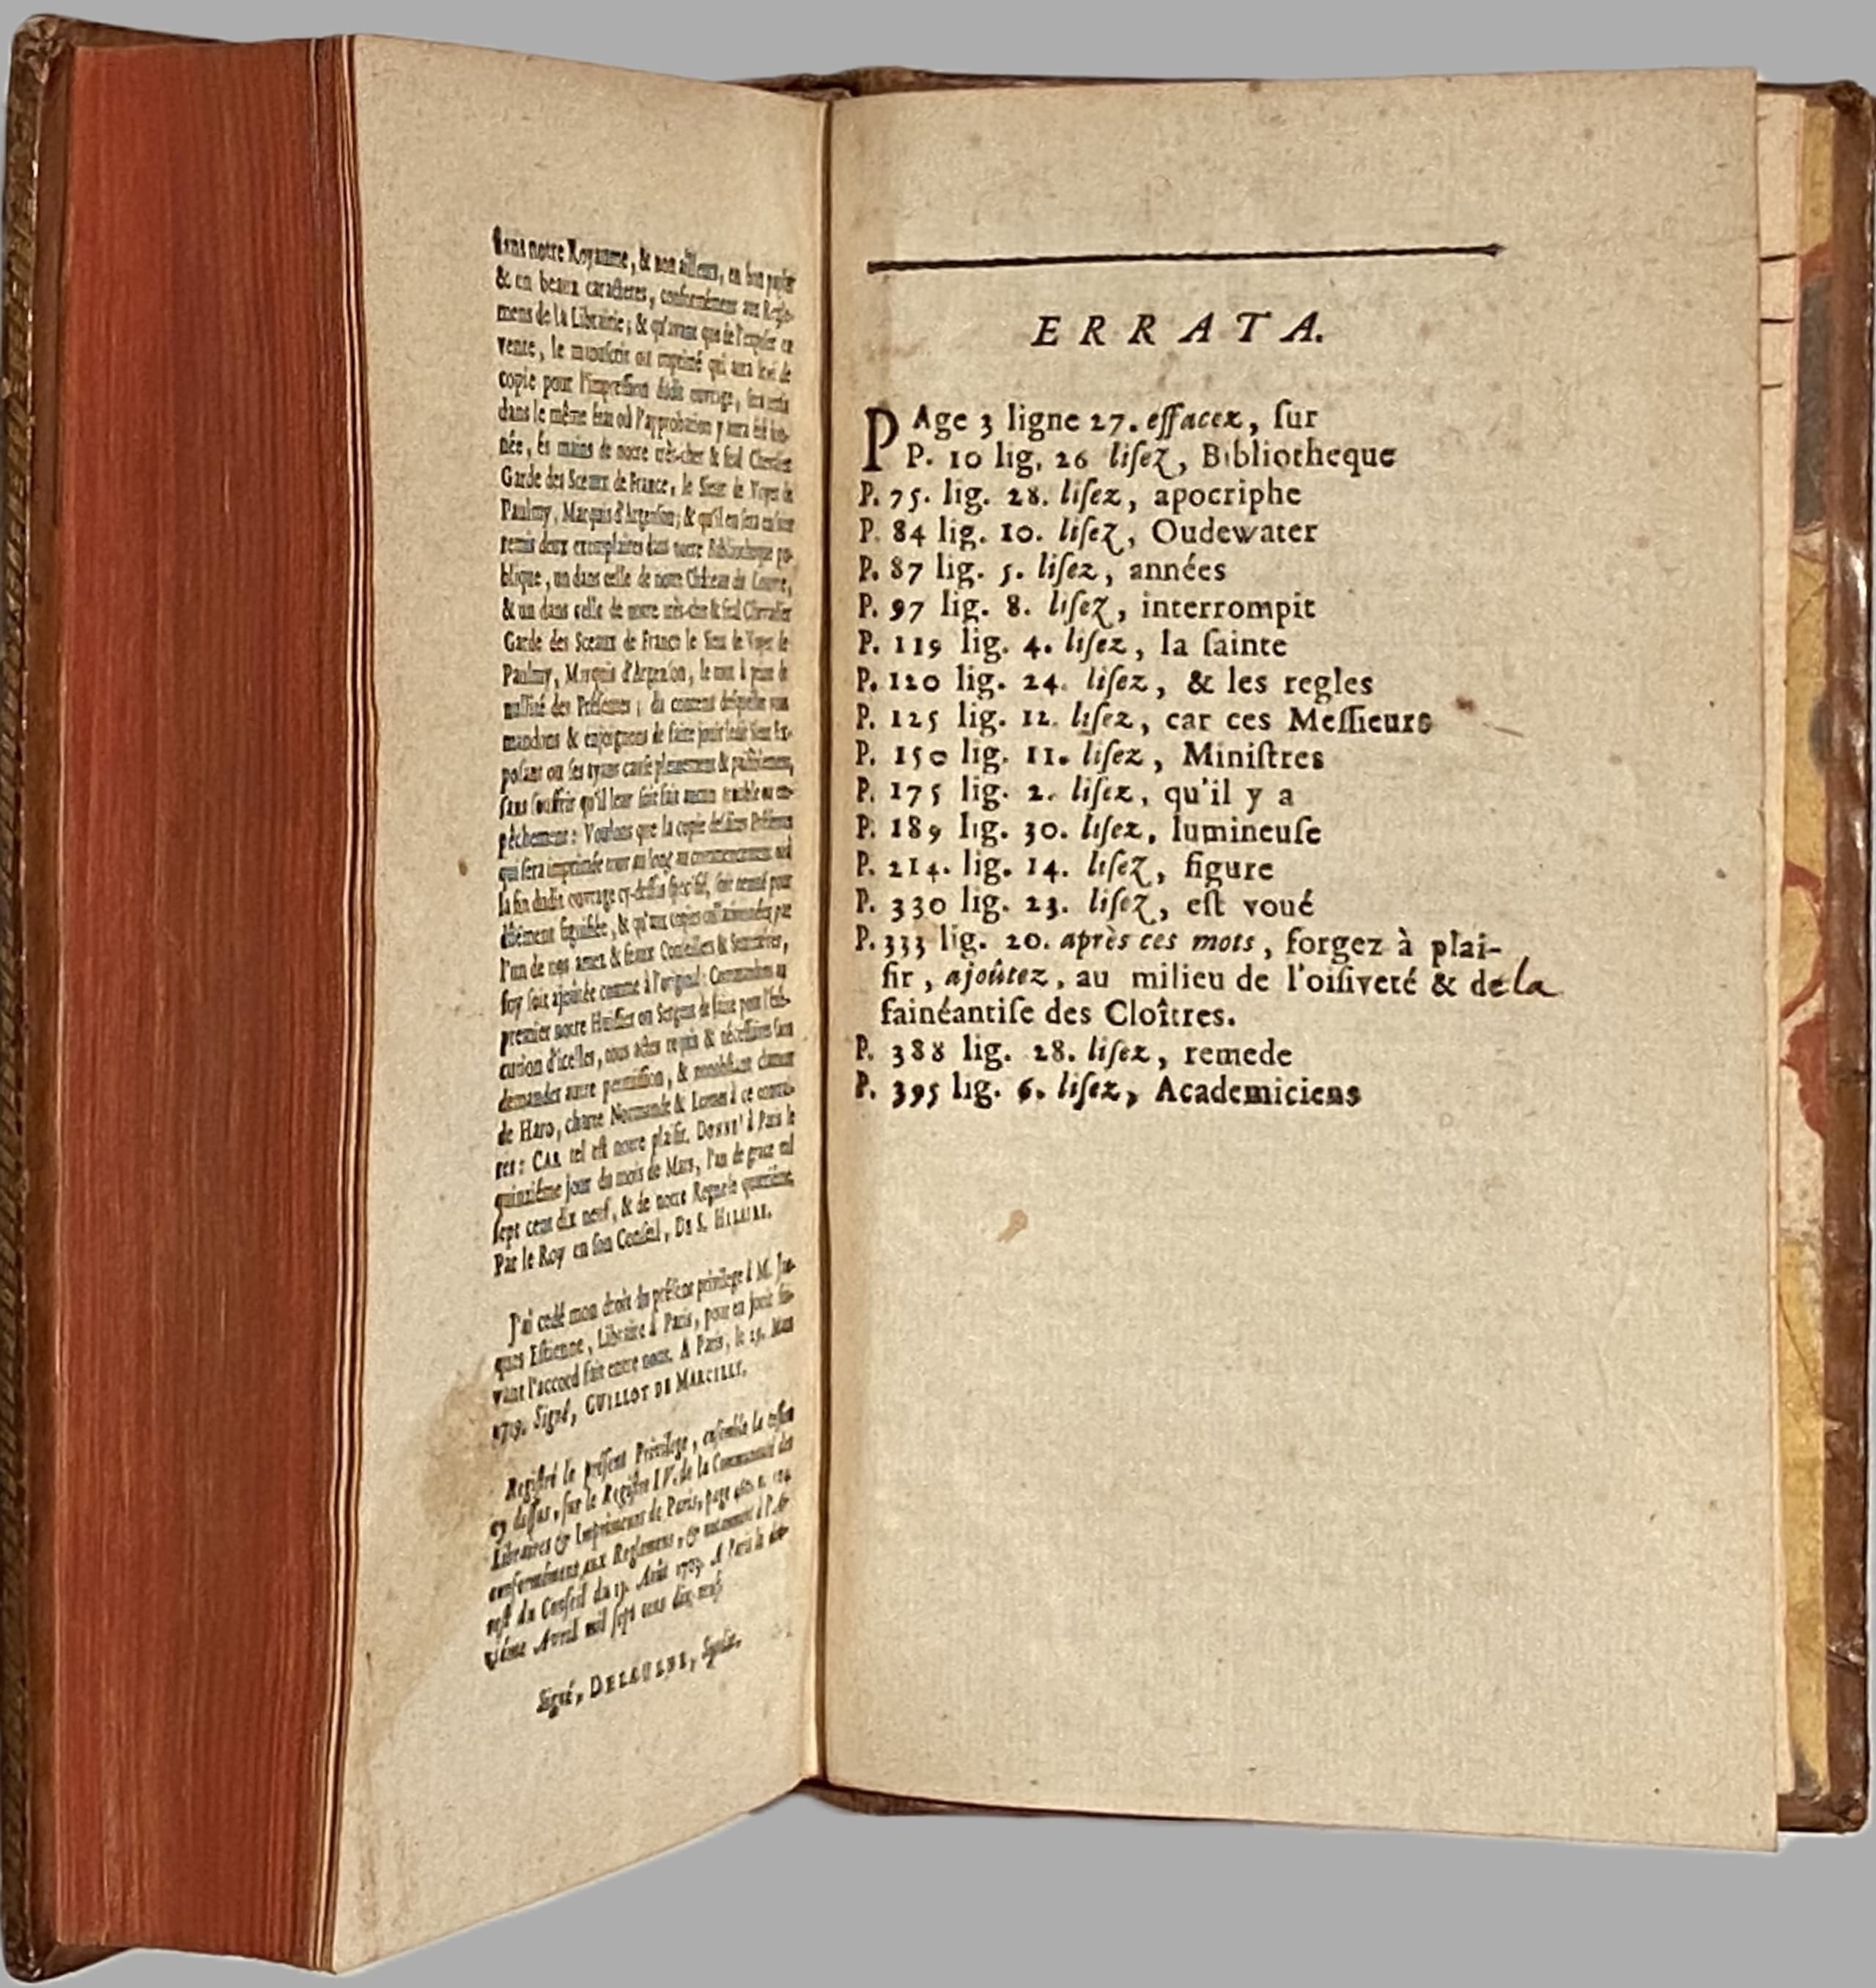 dans notre Royaume, & non ailleurs, en bon papier
& en beaux caracteres, conformément aux Regle-
mens de la Librairie; & qu'avant que de l'exposer en
vente, le manuscrit ou imprimé qui aura servi de
copie pour l'impression dudit ouvrage, sera remis
dans le même état où l'approbation y aura été don-
née, és mains de notre très-cher & feal Chevalier
Garde des Sceaux de France, le Sieur de Voyer de
Paulmy, Marquis d'Argenson; & qu'il en sera ensuite
remis deux exemplaires dans notre Bibliotheque pu-
blique, un dans celle de notre Château du Louvre,
& un dans celle de notre très-cher & feal Chevalier
Garde des Sceaux de France le Sieur de Voyer de
Paulmy, Marquis d'Argenson, le tout à peine de
nullité des Présentes; du contenu desquelles vous
mandons & enjoignons de faire jouir ledit Sieur Ex-
posant ou ses ayans cause pleinement & paisiblement,
sans souffrir qu'il leur soit fait aucun trouble ou em-
pêchement: Voulons que la copie desdites Présentes
qui sera imprimée tout au long au commencement ou à
la fin dudit ouvrage cy-dessus specifié, soit tenuë pour
dûëment signifiée, & qu'aux copies collationnées par
l'un de nos amez & feaux Conseillers & Secretaires,
foy soit ajoûtée comme à l'original: Commandons au
premier notre Huissier ou Sergent de faire pour l'exé-
cution d'icelles, tous actes requis & nécessaires sans
demander autre permission, & nonobstant clameur
de Haro, charte Normande & Lettres à ce contrai-
res: CAR tel est notre plaisir. DONNE' à Paris le
quinziéme jour du mois de Mars, l'an de grace mil
sept cent dix neuf, & de notre Regne le quatriéme,
Par le Roy en son Conseil, DE S. HILAIRE.
J'ai cedé mon droit du présent privilege à M. Jac-
ques Estienne, Libraire à Paris, pour en jouir sui-
vant l'accord fait entre nous. A Paris, le 25. Mars
1719. Signé, GUILLOT DE MARCILLY.
Registré le présent Privilege, ensemble la cession
cy dessus, sur le Registre IV. de la Communauté des
Libraires & Imprimeurs de Paris, page
conformément aux Reglemens, & notamment à l'Ar-
rest du Conseil du 13. Août 1703. A Paris le
Avril mil sept cens dix-neuf.
Signé, DELAULNE, Syndic.
ERRATA.
PAge 3 ligne 27. effacez, ſur
P. 10 lig. 26 liſez, Bibliotheque
P. 75. lig. 28. liſez, apocriphe
P. 84 lig. 10. liſez, Oudewater
P. 87 lig. 5. liſez, années
P. 97 lig. 8. liſez, interrompit
P. 119 lig. 4. liſez, la ſainte
P. 120 lig. 24. liſez, & les regles
P. 125 lig. 12. liſez, car ces Meſſieurs
P. 150 lig. 11. liſez, Miniſtres
P. 175 lig. 2. liſez, qu'il y a
P. 189 lig. 30. liſez, lumineuſe
P. 214. lig. 14. liſez, figure
P. 330 lig. 23. liſez, eſt voué
P. 333 lig. 20. après ces mots, forgez à plai-
ſir, ajoûtez, au milieu de l'oiſiveté & de la
fainéantiſe des Cloîtres.
P. 388 lig. 28. liſez, remede
P. 395 lig. 6. liſez, Academiciens